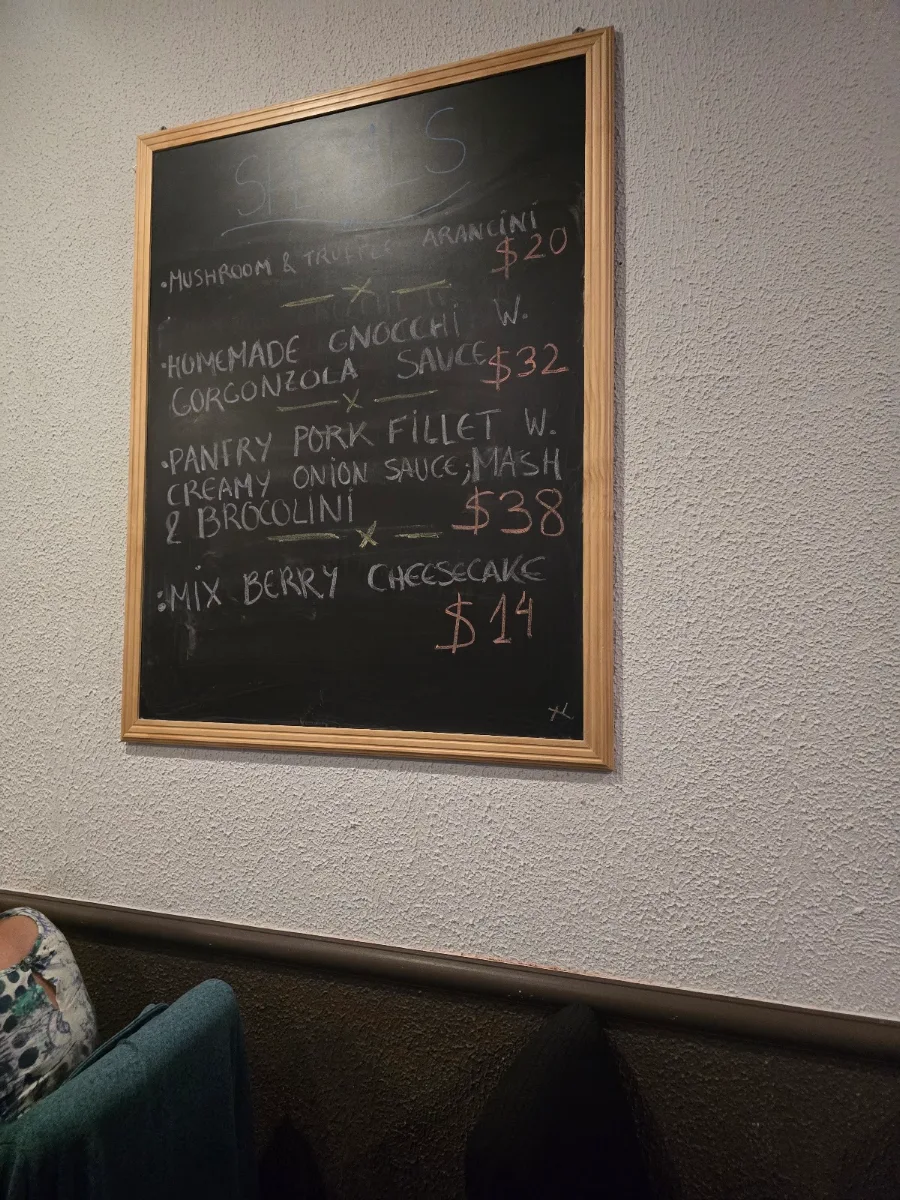 SPECIALS
•MUSHROOM & TRUFFLE ARANCINI
$20
•HOMEMADE GNOCCHI W.
GORGONZOLA SAUCE $32
•PANTRY PORK FILLET W.
CREAMY ONION SAUCE, MASH
& BROCOLINI $38
•MIX BERRY CHEESECAKE
$14